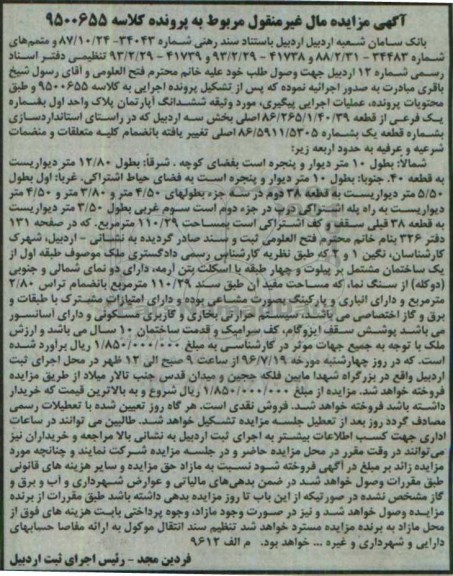 آگهی مزایده مال غیرمنقول مربوط به پرونده کلاسه ۹۵۰۰۶۵۵
بانک سامان شعبه اردبیل اردبیل باستناد سند رهنی شماره ۳۴۰۴۳- ۸۷/۱۰/۲۴ و متمم‌های
شماره ۳۴۴۸۳ – ۸۸/۲/۳۱ – ۴۱۷۳۸ – ۹۳/۲/۲۹ و ۴۱۷۳۹ – ۹۳/۲/۲۹ تنظیمی دفتر اسناد
رسمی شماره ۱۲ اردبیل جهت وصول طلب خود علیه خانم محترم فتح العلومی و آقای رسول شیخ
باقری مبادرت به صدور اجرائیه نموده که پس از تشکیل پرونده اجرایی به کلاسه ۹۵۰۰۶۵۵ و طبق
محتویات پرونده، عملیات اجرایی پیگیری، مورد وثیقه ششدانگ آپارتمان پلاک واحد اول بشماره
یک فرعی از قطعه ۸۶/۲۶۵/۱/۴۰/۳۹ اصلی بخش سه اردبیل که در راستای استانداردسازی
بشماره قطعه یک بشماره ۸۶/۵۹۱۱/۵۳۰۵ اصلی تغییر یافته بانضمام کلیه متعلقات و منضمات
شرعیه و عرفیه به حدود اربعه زیر:
شمالا: بطول ۱۰ متر دیوار و پنجره است بفضای کوچه . شرقا: بطول ۱۲/۸۰ متر دیواریست
به قطعه ۴۰. جنوبا: بطول ۱۰ متر دیوار و پنجره است به فضای حیاط اشتراکی. غربا: اول بطول
۵/۵۰ متر دیواریست به قطعه ۳۸ دوم در سه جزء بطولهای ۴/۵۰ متر و ۳/۸۰ متر و ۴/۵۰ متر
دیواریست به راه پله اشتراکی درب در جزء دوم است سوم غربی بطول ۳/۵۰ متر دیواریست
به قطعه ۳۸ قبلی سقف و کف اشتراکی است بمساحت ۱۱۰/۲۹ مترمربع. که در صفحه ۱۳۱
دفتر ۳۲۶ بنام خانم محترم فتح العلومی ثبت و سند صادر گردیده به نشانی - اردبیل، شهرک
کارشناسان، نگین ۱ و ۲ که طبق نظریه کارشناس رسمی دادگستری ملک موصوف طبقه اول از
یک ساختمان مشتمل بر پیلوت و چهار طبقه با اسکلت بتن آرمه، دارای دو نمای شمالی و جنوبی
(دوکله) از سنگ نما، که مساحت مفید آن طبق سند ۱۱۰/۲۹ مترمربع بانضمام تراس ۲/۸۰
مترمربع و دارای انباری و پارکینگ بصورت مشاعی بوده و دارای امتیازات مشترک با طبقات و
برق و گاز اختصاصی می باشد، سیستم حرارتی بخاری و کاربری مسکونی و دارای آسانسور
می باشد پوشش سقف ایزوگام، کف سرامیک و قدمت ساختمان ۱۰ سال می باشد و ارزش
ملک با توجه به جمیع جهات موثر در کارشناسی به مبلغ ۱/۸۵۰/۰۰۰/۰۰۰ ریال برآورد شده
است. که در روز چهارشنبه مورخه ۹۶/۷/۱۹ از ساعت ۹ صبح الی ۱۲ ظهر در محل اجرای ثبت
اردبیل واقع در بزرگراه شهدا مابین فلکه ججین و میدان قدس جنب تالار میلاد از طریق مزایده
فروخته خواهد شد. مزایده از مبلغ ۱/۸۵۰/۰۰۰/۰۰۰ ریال شروع و به بالاترین قیمت که خریدار
داشته باشد فروخته خواهد شد. فروش نقدی است. هر گاه روز تعیین شده با تعطیلات رسمی
مصادف گردد روز بعد از تعطیل جلسه مزایده تشکیل خواهد شد. طالبین می توانند در ساعات
اداری جهت کسب اطلاعات بیشتر به اجرای ثبت اردبیل به نشانی بالا مراجعه و خریداران نیز
می‌توانند در وقت مقرر در محل مزایده حاضر و در جلسه مزایده شرکت نمایند و چنانچه مورد
مزایده زائد بر مبلغ در آگهی فروخته شود نسبت به مازاد حق مزایده و سایر هزینه های قانونی
طبق مقررات وصول خواهد شد در ضمن بدهی‌های مالیاتی و عوارض شهرداری و آب و برق و
گاز مشخص نشده در صورتیکه از این باب تا روز مزایده بدهی داشته باشد طبق مقررات از برنده
مزایده وصول خواهد شد و نیز در صورت وجود مازاد، وجوه پرداختی بابت هزینه های فوق از
محل مازاد به برنده مزایده مسترد خواهد شد تنظیم سند انتقال موکول به ارائه مفاصا حسابهای
دارایی و شهرداری و غیره ... خواهد بود. م الف ۹۶۱۲
فردین مجد - رئیس اجرای ثبت اردبیل